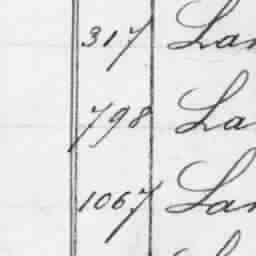 317 Lan
798 La
1067 Lan